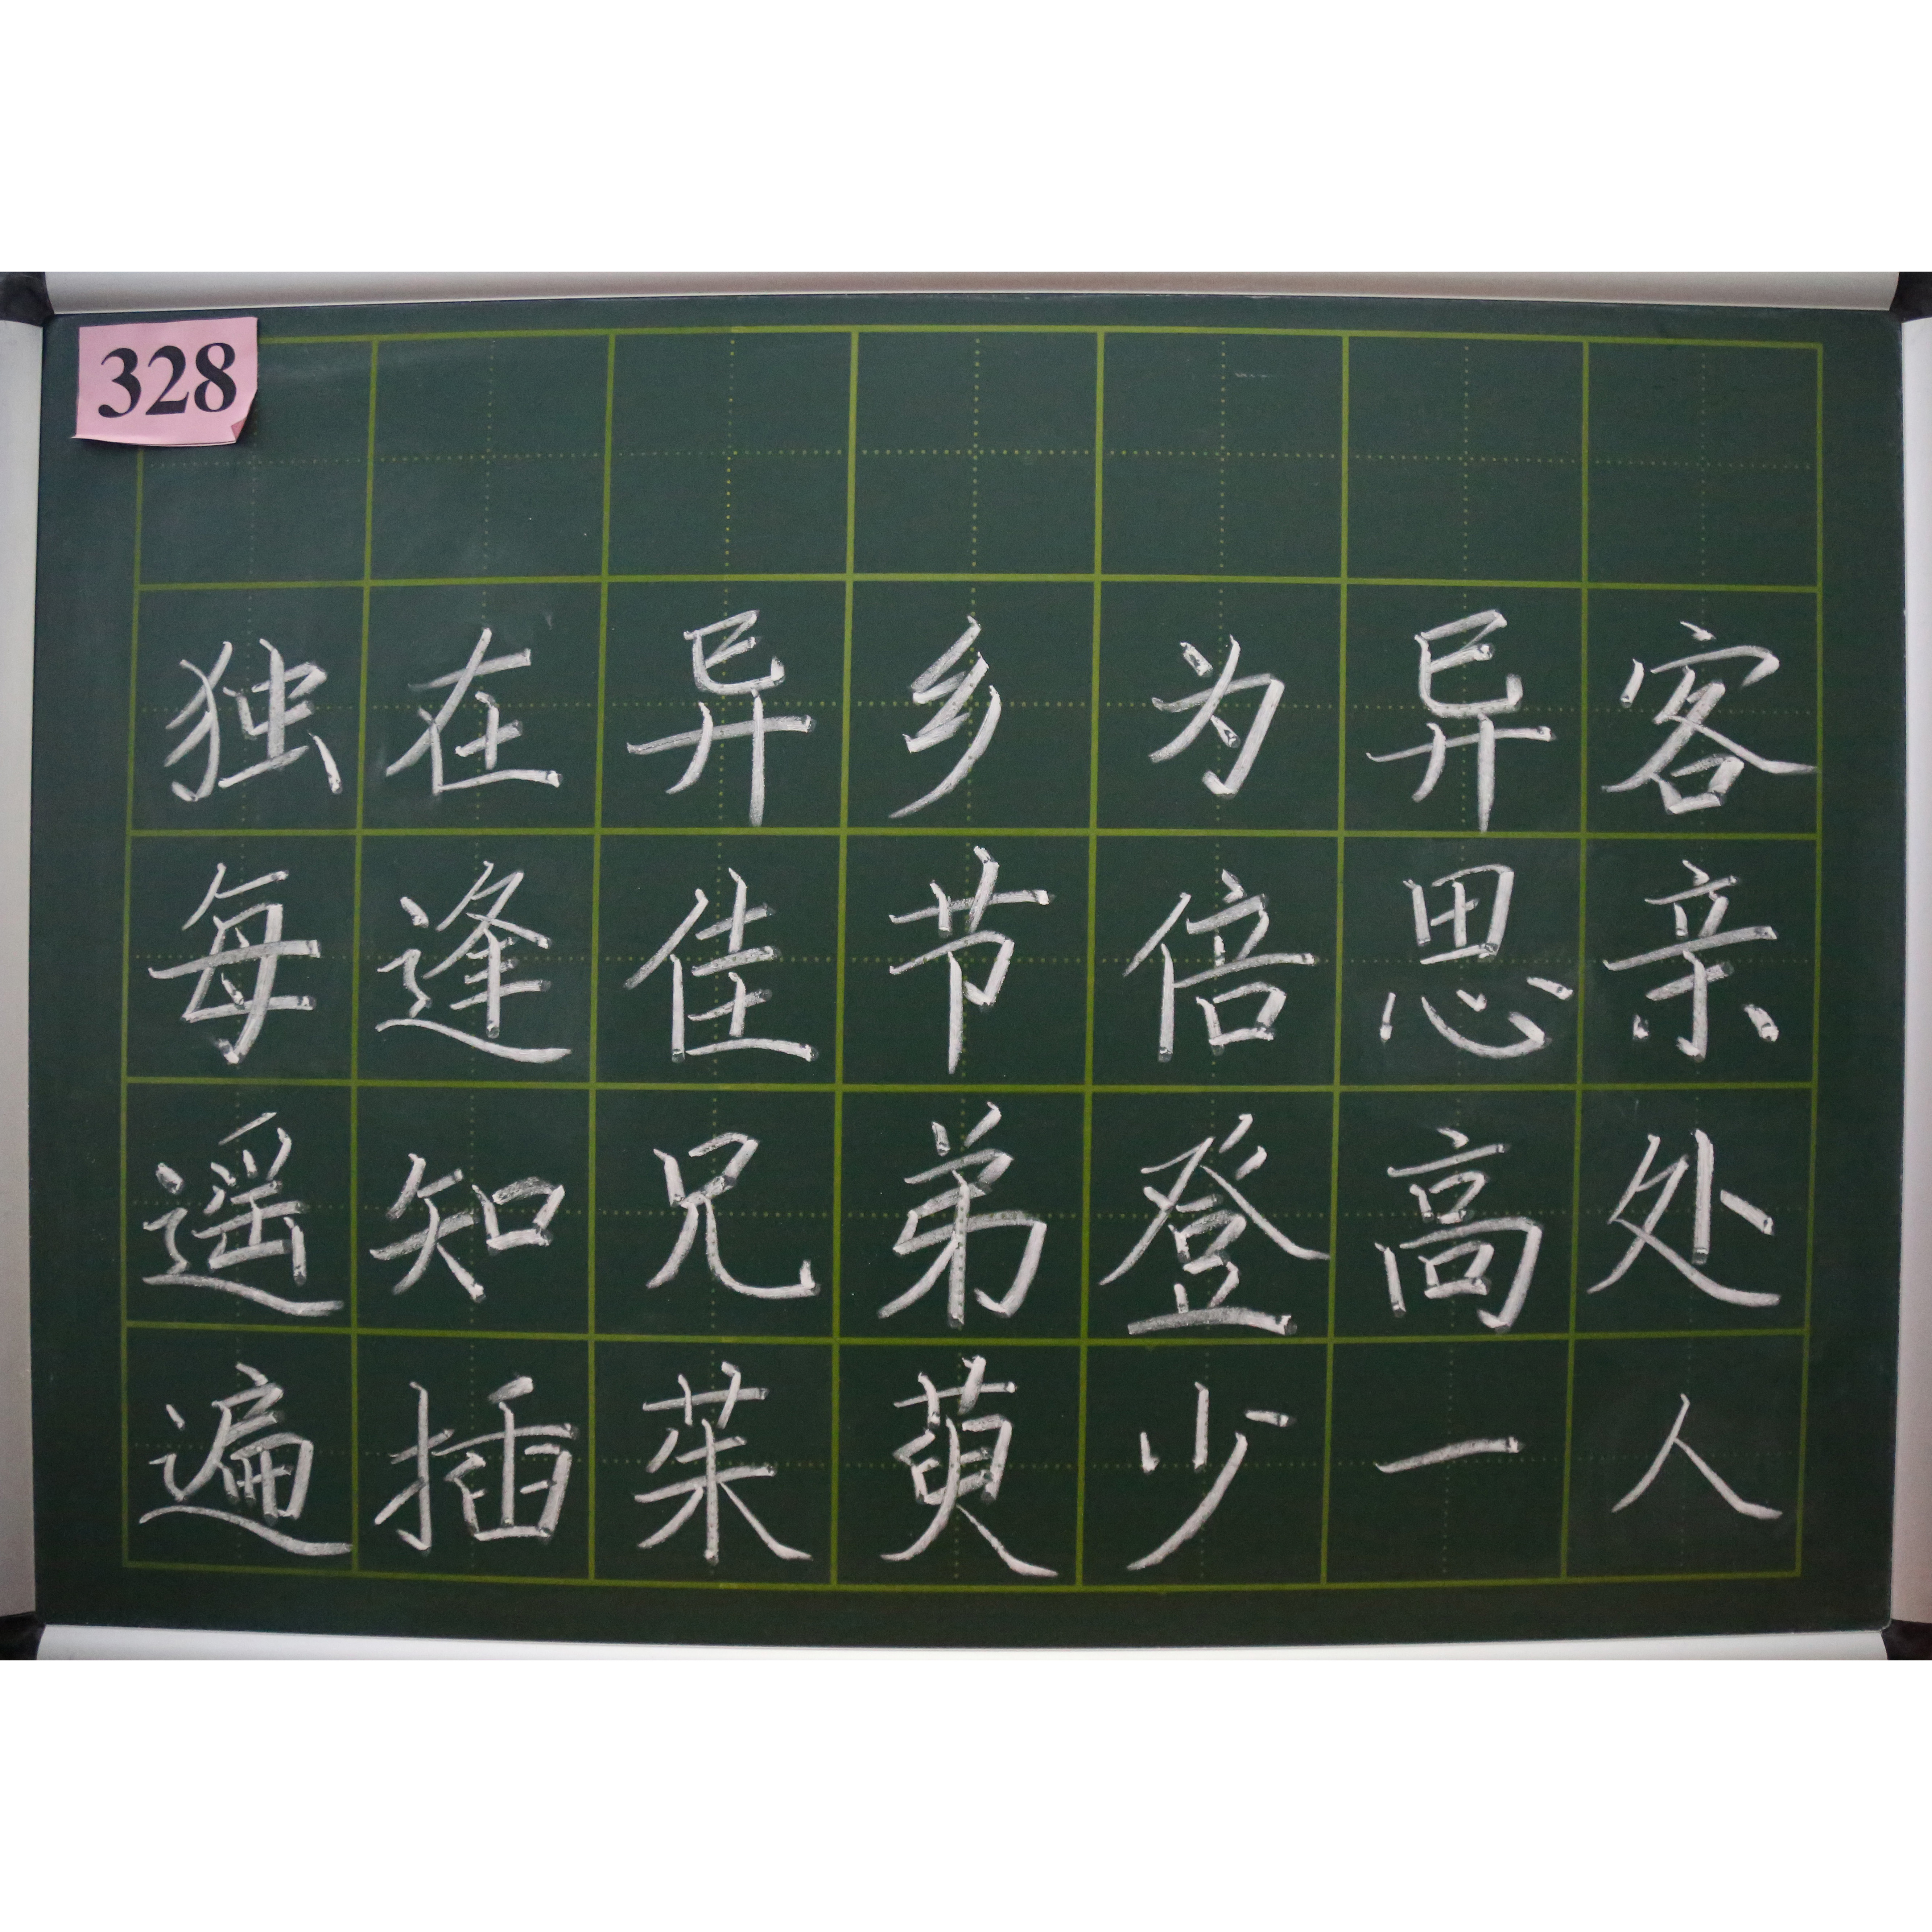 328
独在异乡为异客
每逢佳节倍思亲
遥知兄弟登高处
遍插茱萸少一人